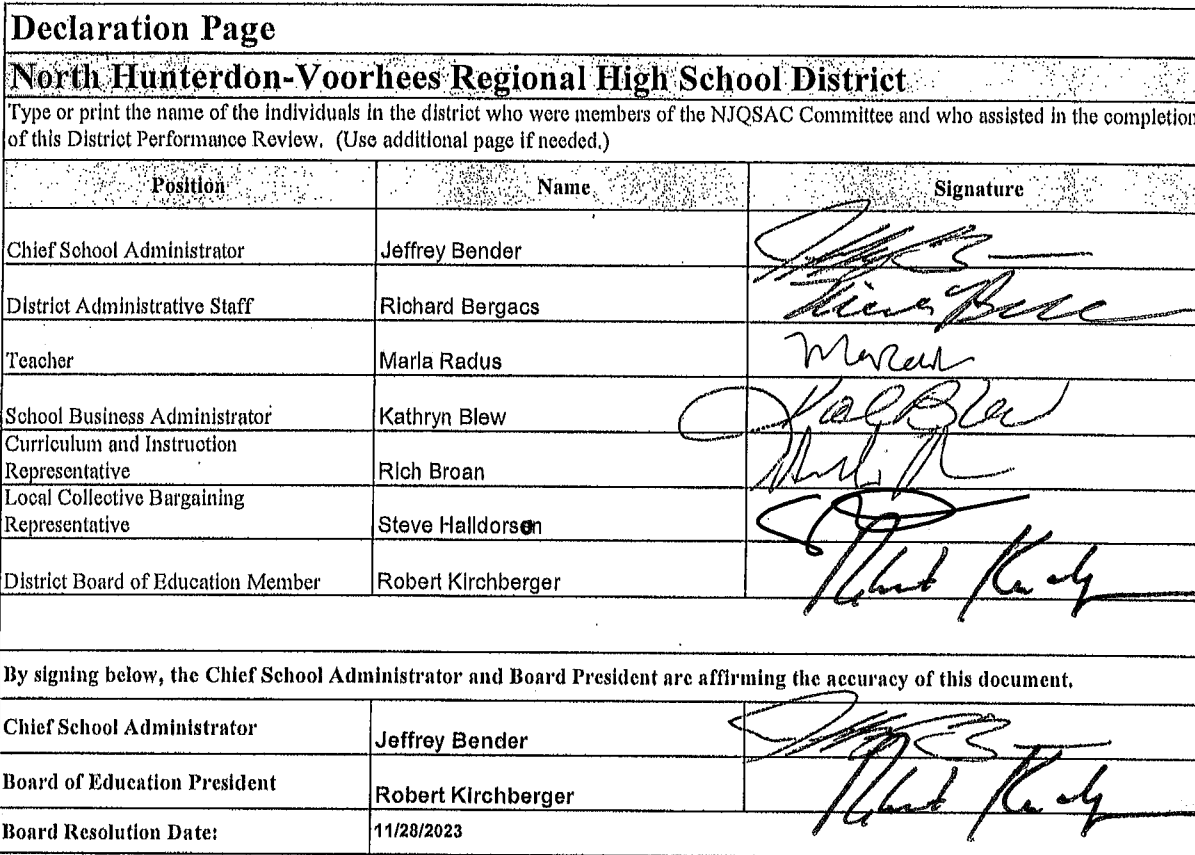 Declaration Page
North Hunterdon-Voorhees Regional High School District
Type or print the name of the individuals in the district who were members of the NJQSAC Committee and who assisted in the completion
of this District Performance Review. (Use additional page if needed.)
Position Name Signature
Chief School Administrator Jeffrey Bender
District Administrative Staff Richard Bergacs
Teacher Marla Radus
School Business Administrator Kathryn Blew
Curriculum and Instruction
Representative Rich Broan
Local Collective Bargaining
Representative Steve Halldorsen
District Board of Education Member Robert Kirchberger
By signing below, the Chief School Administrator and Board President are affirming the accuracy of this document.
Chief School Administrator Jeffrey Bender
Board of Education President Robert Kirchberger
Board Resolution Date: 11/28/2023